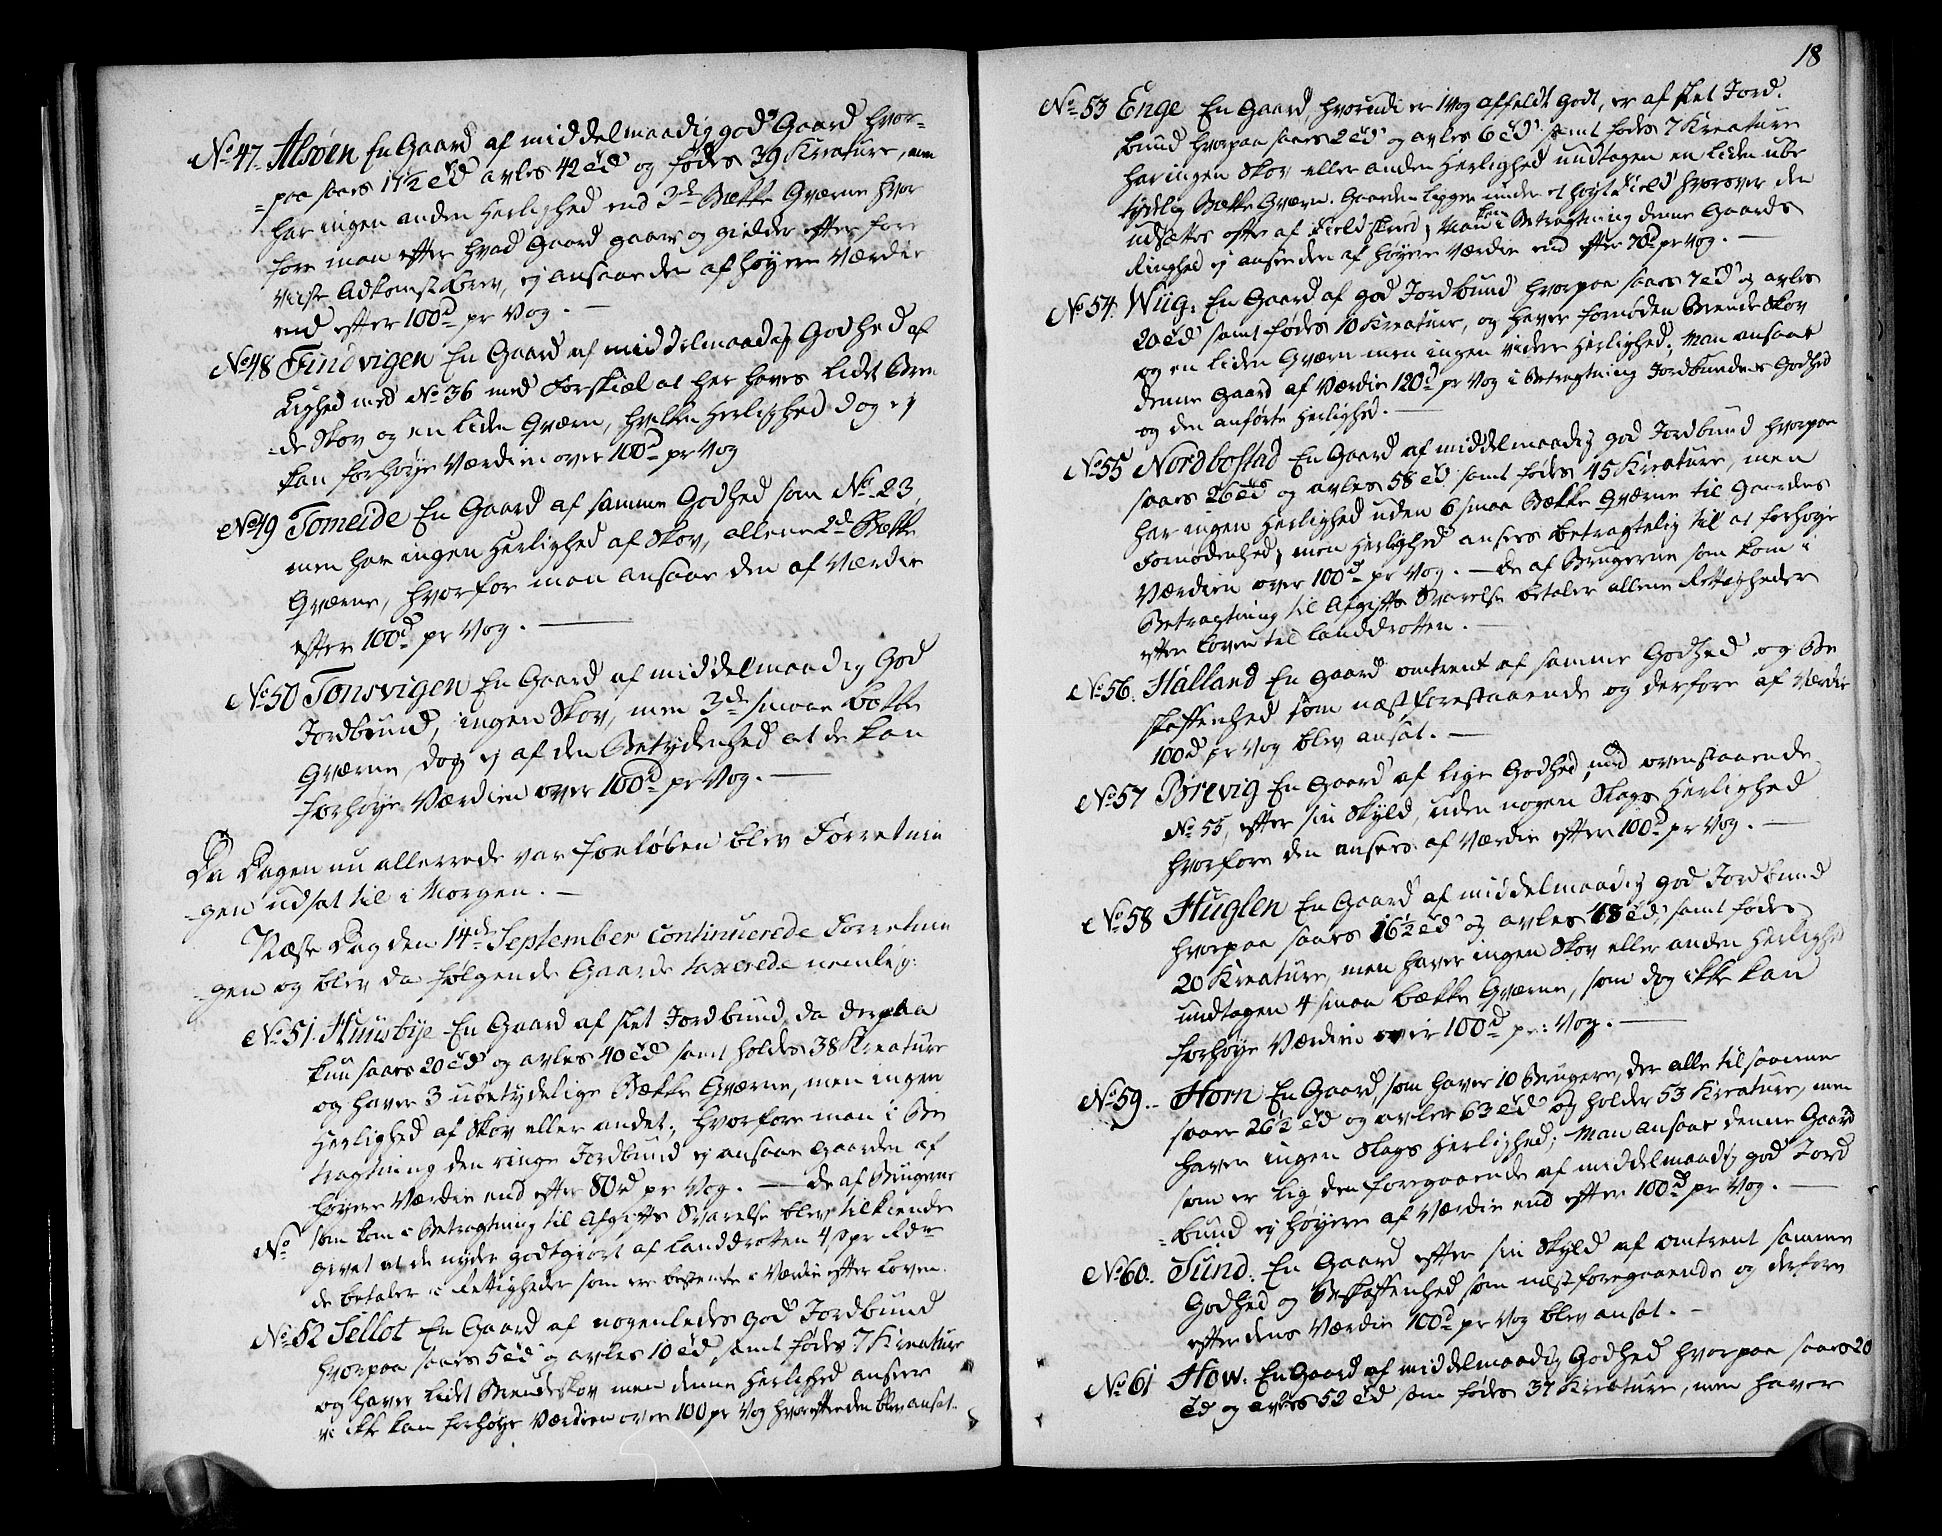 No 47. Alsøen En Gaard af middelmaadig god Gaard hvor-
-paa saaes 17½ Td avles 42 Td og fødes 39 Kreature, men
har ingen anden Herlighed end 2de Bække Qværne hvor
fore man efter hvad Gaard gaar og gielder efter fore
viiste Adkomstbrev, ej ansaae den af høyere Værdie
end efter 100d pr Vog. —
No 48 Findvigen En Gaard af middelmaadig Godhed af
Lighed med No 36 med Forskiæl at her haves lidt Bren
-de Skov og en liden Qværn, hvilken Herlighed dog ej
kan forhøye Værdien over 100d pr Vog
No 49 Tomeide En Gaard af samme Godhed som No 23,
men har ingen Herlighed af Skov, allene 2de Bække
Qværne, hvorfor man ansaae den af Værdie
efter 100d pr Vog. —
No 50 Tonsvigen En Gaard af middelmaadig God
Jordbund, ingen Skov, men 3de smaae Bække
Qværne, dog ej af den Betydenhed at de kan
forhøye Værdien over 100d pr Vog. —
Da Dagen nu allerrede var forløben blev Forretnin
-gen udsat til i Morgen. —
Næste Dag den 14de September continuerede Forretnin
-gen og blev da følgende Gaarde taxerede nemlig:
No 51. Huusbye En Gaard af slet Jordbund da derpaa
kun saaes 20 Td og avles 40 Td samt holdes 38 Kreature
og haver 3 ubetydelige Bække Qværne, men ingen
Herlighed af Skov eller andet; hvorfore man i Be
tragtning den ringe Jordbund ej ansaae Gaarden af
høyere Værdie end efter 80d pr Vog. — de af Brugerne
No som kom i Betragtning til Afgifts Svarelse blev tilkiende
givet at de nyder godtgiort af Landdrotten 4 s pr Rdr
de betaler i Rettigheder som ere bestemte i Værdie efter Loven.
No 52 Sellot En Gaard af nogenledes god Jordbund
hvorpaa saaes 5 Td og avles 10 Td, samt fødes 7 Kreature
og haver lidt Brendeskov men denne Herlighed ansees
ikke kan forhøye Værdien over 100 pr Vog hvorefter den blev ansat.
18
No 53 Enge En Gaard, hvorudi er 1 Vog affeldt Godt, er af slet Jord-
bund hvorpaa saaes 2 Td og avles 6 Td samt fødes 7 Kreature
har ingen Skov eller anden Herlighed undtagen en liden ube
tydelig Bække Qværn. Gaarden ligger under et høyt Field hvorover den
udsættes ofte af Fieldskred; Man kan i Betragtning denne Gaards
Ringhed ej ansee den af høyere Værdie end efter 70d pr Vog. —
No 54. Wiig: En Gaard af god Jordbund hvorpaa saaes 7 Td og avles
20 Td samt fødes 10 Kreature, og haver fornøden Brende Skov
og en liden Qværn men ingen videre Herlighed; Man ansaae
denne Gaard af Værdie 120d pr Vog i Betragtning Jordbundens Godhed
og den anførte Herlighed. —
No 55 Nordbostad En Gaard af middelmaadig god Jordbund hvorpaa
saaes 26 Td og avles 58 Td samt fødes 45 Kreature, men
har ingen Herlighed uden 6 smaa Bække Qværne til Gaardens
Fornødenhed; men Herlighed ansees betragtelig til at forhøye
Værdien over 100d pr Vog. — de af Brugerne som kom i
Betragtning til Afgifts Svarelse betaler allene Rettigheder
efter Loven til Landdrotten. —
No 56. Halland En Gaard omtrent af samme Godhed og Be
skaffenhed som næstforestaaende og derfore af Værdie
100d pr Vog blev ansat. —
No 57 Brevig En Gaard af lige Godhed med ovenstaaende
No 55, efter sin Skyld, uden nogen Slags Herlighed
hvorfore den ansees af Værdie efter 100d pr Vog. —
No 58 Huglen En Gaard af middelmaadig god Jordbund
hvorpaa saaes 16½ Td og avles 48 Td, samt fødes
20 Kreature, men haver ingen Skov eller anden Herlighed
undtagen 4 smaa Bække Qværne, som dog ikke kan
forhøye Værdien over 100d pr: Vog. —
No 59.. Horn En Gaard, som haver 10 Brugere, der alle tilsamme
saaer 26½ Td og avler 63 Td og holder 53 Kreature, men
haver ingen Slags Herlighed; Man ansaae denne Gaard
som er lig den foregaaende af middelmaadig god Jord
-bund ej høyere af Værdie end efter 100d pr Vog. —
No 60.. Sund: En Gaard efter sin Skyld af omtrent samme
Godhed og Beskaffenhed som næstforegaaende og derfore
efter dens Værdie 100d pr Vog blev ansat. —
No 61 How: En Gaard af middelmaadig Godhed hvorpaa saaes 20
Td og avles 52 Td som fødes 37 Kreature, men haver